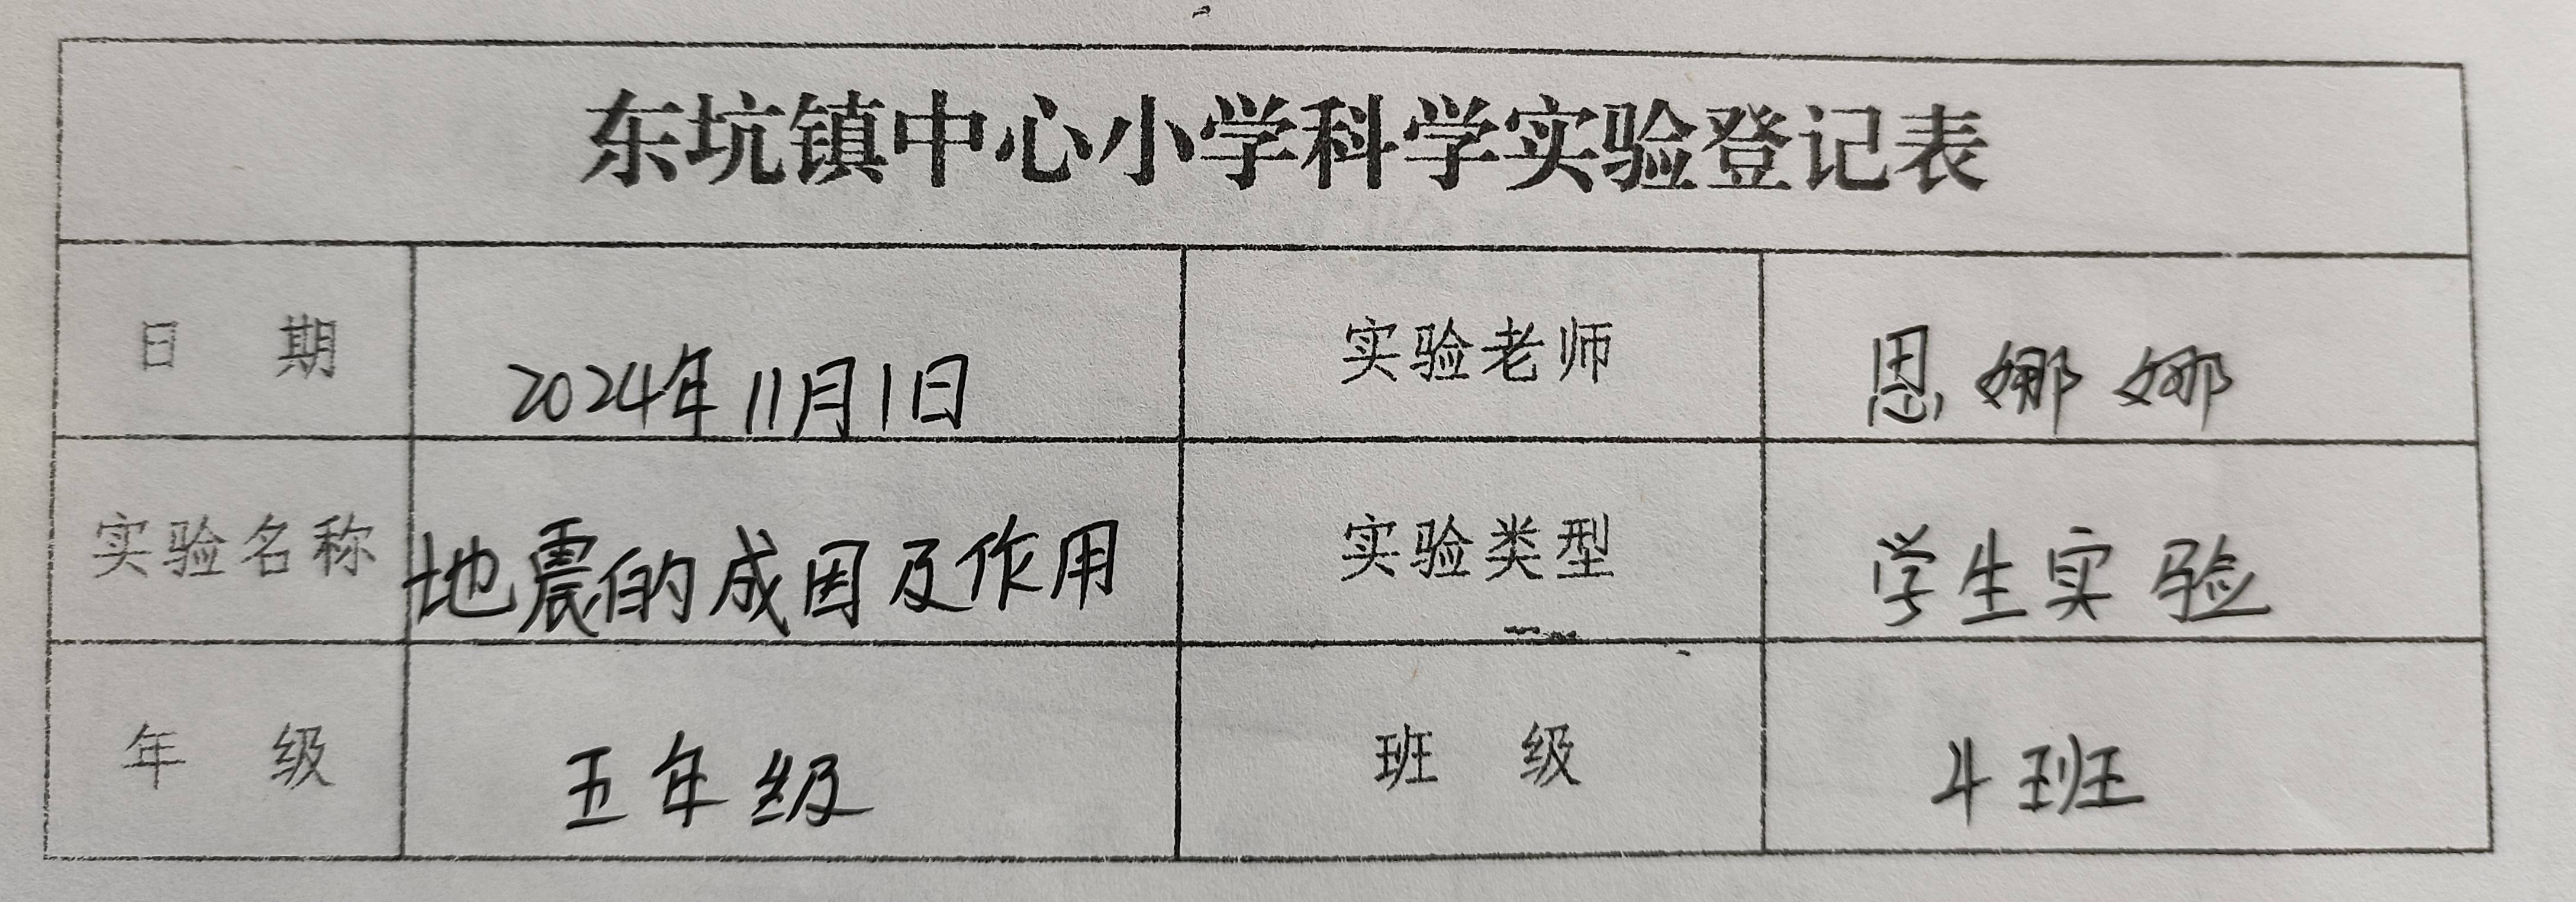 东坑镇中心小学科学实验登记表
日 期 2024年11月1日 实验老师 恩娜娜
实验名称 地震的成因及作用 实验类型 学生实验
年 级 五年级 班 级 4班